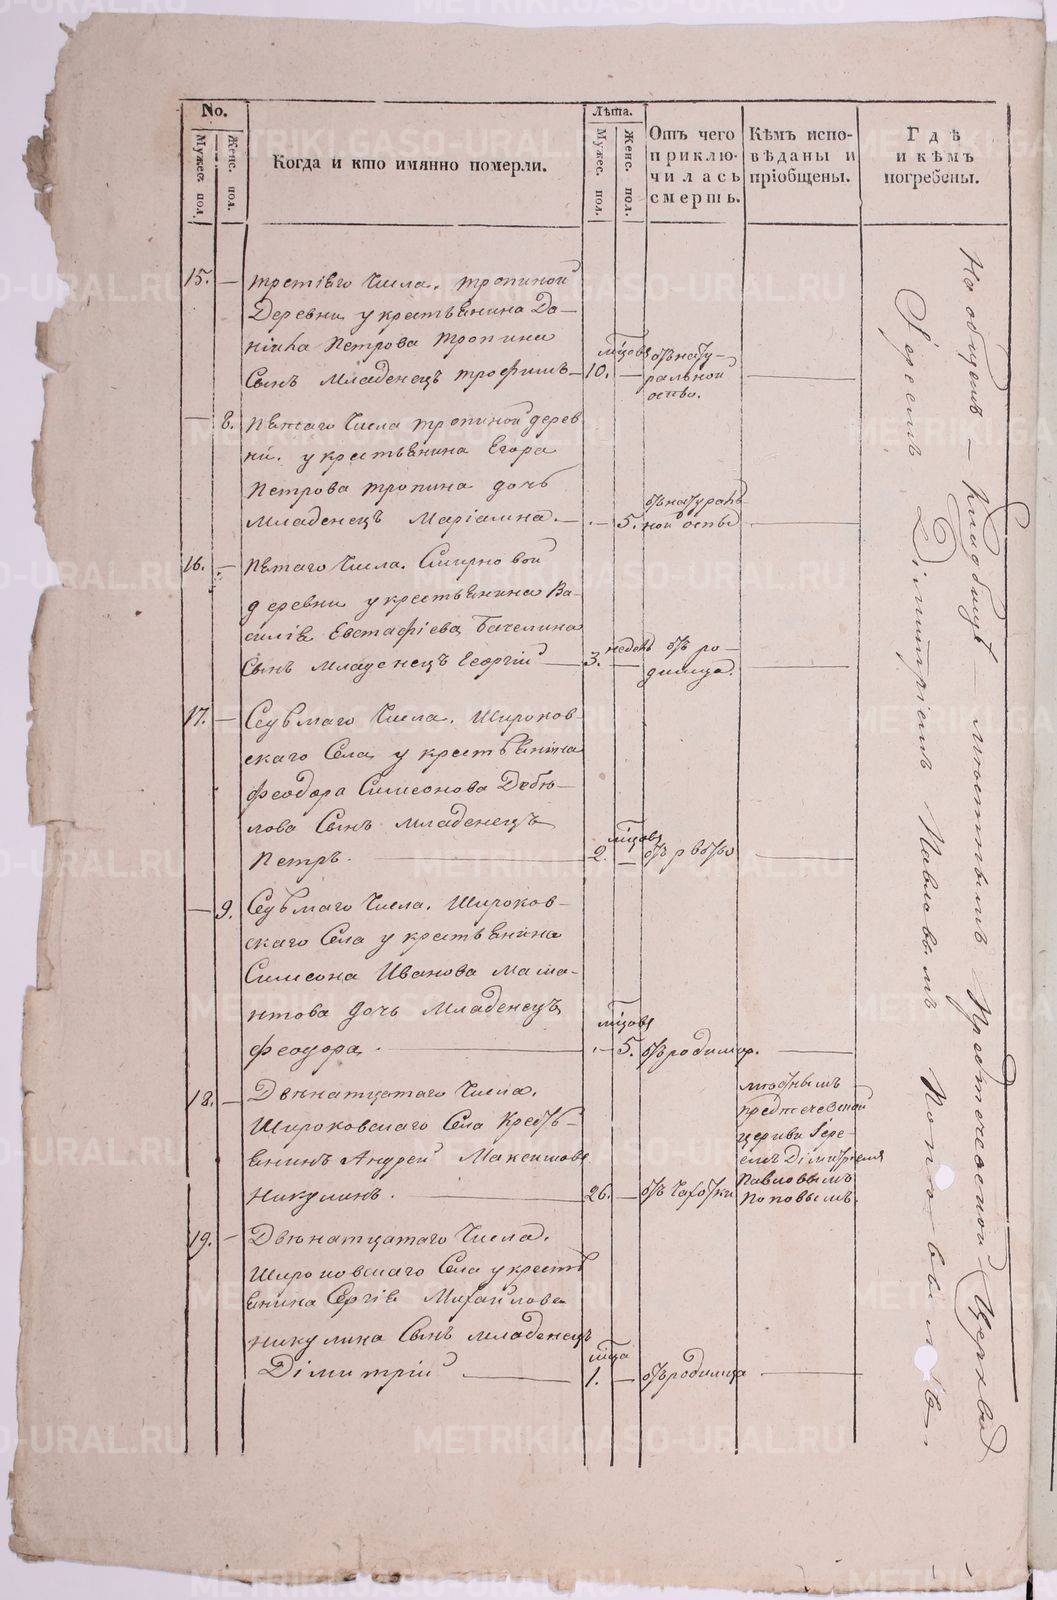 No.
Мужес. пол.
Женс. пол.
Когда и кто имянно померли.
Лѣта.
Мужес. пол.
Женс. пол.
Отъ чего
приклю-
чилась
смерть.
Кѣмъ испо-
вѣданы и
пріобщены.
Гдѣ
и кѣмъ
погребены.
15. — третіяго Числа. тропиной
Деревни у крестьянина Да-
ніила Петрова Тропина
Сынъ Младенецъ трофимъ — 10. мѣсяцовъ — отъ нату-
ральной
оспы.
— 8. пятаго Числа тропиной дерев
ни. у крестьянина Егора
Петрова тропина дочь
Младенецъ Маріамна. — 5. отъ натураль-
ной оспы
16. — пятаго Числа. Смирновой
деревни у крестьянина Ва-
силія Евстафіева Бачелина
Сынъ Младенецъ Георгій — 3. недель — отъ ро-
димца.
17. — Седьмаго Числа. Широков-
скаго Села у крестьянина
Феодора Симеонова Дебѣ-
лова Сынъ младенецъ
Петръ. — 2. мѣсяцовъ — отъ рвоты
— 9. Седьмаго Числа. Широков-
скаго Села у крестьянина
Симеона Иванова Мама-
нтова дочь Младенецъ
Феодора. — 5. мѣсяцовъ отъ родимца.
18. — Двенатцатаго Числа.
Широковскаго Села Кресть-
янинъ Андрей Максимовъ
Никулинъ. — 26. — отъ Чахотки
местнымъ
предтечевской
церкви Іере-
емъ Діμитріемъ
Павловымъ
Поповымъ.
19. — Двенатцатаго Числа.
Широковскаго Села у кресть
янина Сергія Михайлова
никулина Сынъ младенецъ
Дімитрій — 1. мѣсяца — отъ родимца
На общемъ — Кладбищѣ — мѣстнымъ Предтечевской Церкви
Іереемъ Дімитріемъ Павловымъ Поповымъ
METRIKI.GASO-URAL.RU